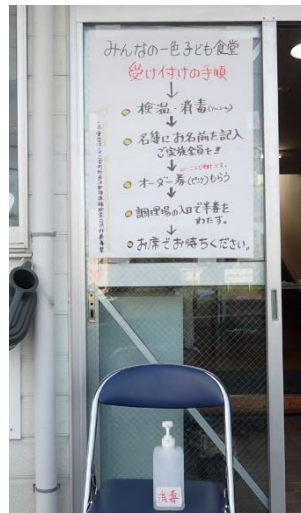 みんなの一色子ども食堂
受け付けの手順
↓
検温・消毒(アルコール)
↓
名簿にお名前を記入
ご家族全員を!!
↓
オーダー券(ピンク)もらう
↓
調理場の入口で半券を
わたす。
↓
お席でお待ちください。
消毒